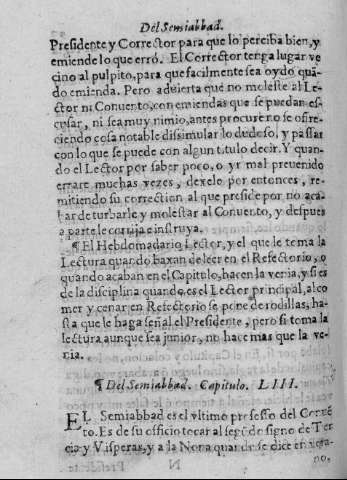 Del Semiabbad.
Presidente y Corrector para que lo perciba bien, y
emiende lo que erró. El Corrector tenga lugar ve
cino al pulpito, para que facilmente sea oydo quã-
do emienda. Pero aduierta que no moleste al Le-
ctor ni Conuento, con emiendas que se puedan es-
cusar, ni sea muy nimio, antes procure no se ofre-
ciendo cosa notable dissimular lo dudoso, y passar
con lo que se puede con algun titulo decir. Y quan-
do el Lector por saber poco, o yr mal preuenido
errare muchas vezes, dexelo por entonces, re-
mitiendo su correction al que preside por no aca-
bar de turbarle y molestar al Conuento, y despues
a parte le corrija e instruya.
¶ El Hebdomadario Lector, y el que le toma la
Lectura quando baxan de leer en el Refectorio, o
quando acaban en el Capitulo, hacen la venia, y si es
de la disciplina quando es el Lector principal, al co
mer y cenar en Refectorio se pone de rodillas, ha-
sta que le haga señal el Presidente, pero si toma la
lectura aunque sea junior, no hace mas que la ve-
nia.
¶ Del Semiabbad. Capitulo. LIII.
EL Semiabbad es el vltimo professo del Conuẽ
to. Es de su officio tocar al segũdo signo de Ter
cia y Visperas, y a la Nona quando se dice en vera-
N
no,